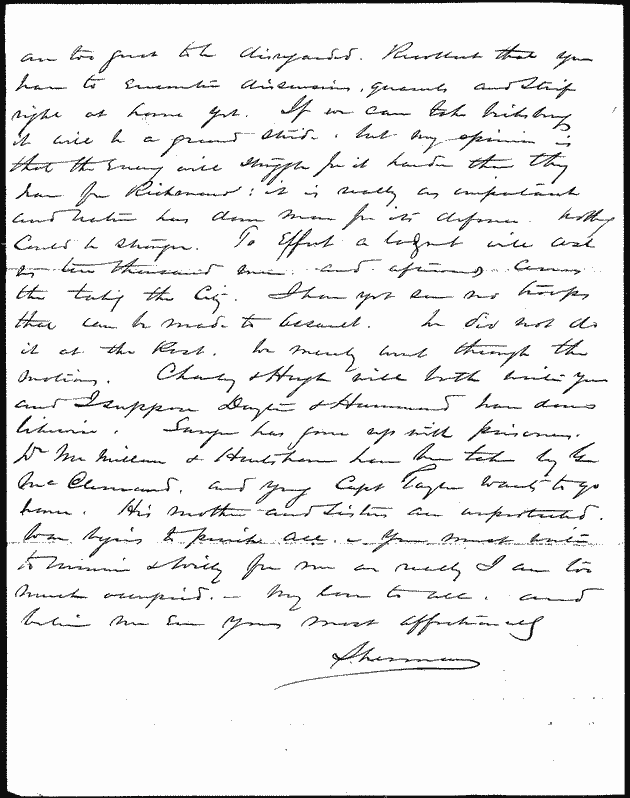 are too great to be disregarded. Recollect that you
have to encounter dissensions, quarrels and strife
right at home yet. If we can take Vicksburg
it will be a grand stride, but my opinion is
that the Enemy will struggle for it harder than they
have for Richmond: it is really as important
and Nature has done more for its defense. Nothing
could be stronger. To Effect a lodgmt will cost
us ten thousand men and afterwards comes
the taking the City. I have yet seen no troops
that can be made to assault. We did not do
it at the Post. We merely went through the
motions. Charley & Hugh will both write you
and I suppose Dayton & Hammond have done
likewise. Sanger has gone up with prisoners.
Dr McMillan & Hartshorn have been taken by Gn
McClernand, and young Capt Taylor wants to go
home. His mother and sisters are unprotected.
War begins to pinch all. You must write
to Minnie & Willy for me as really I am too
much occupied. - My love to all, and
believe me Ever Yours most affectionately
Sherman